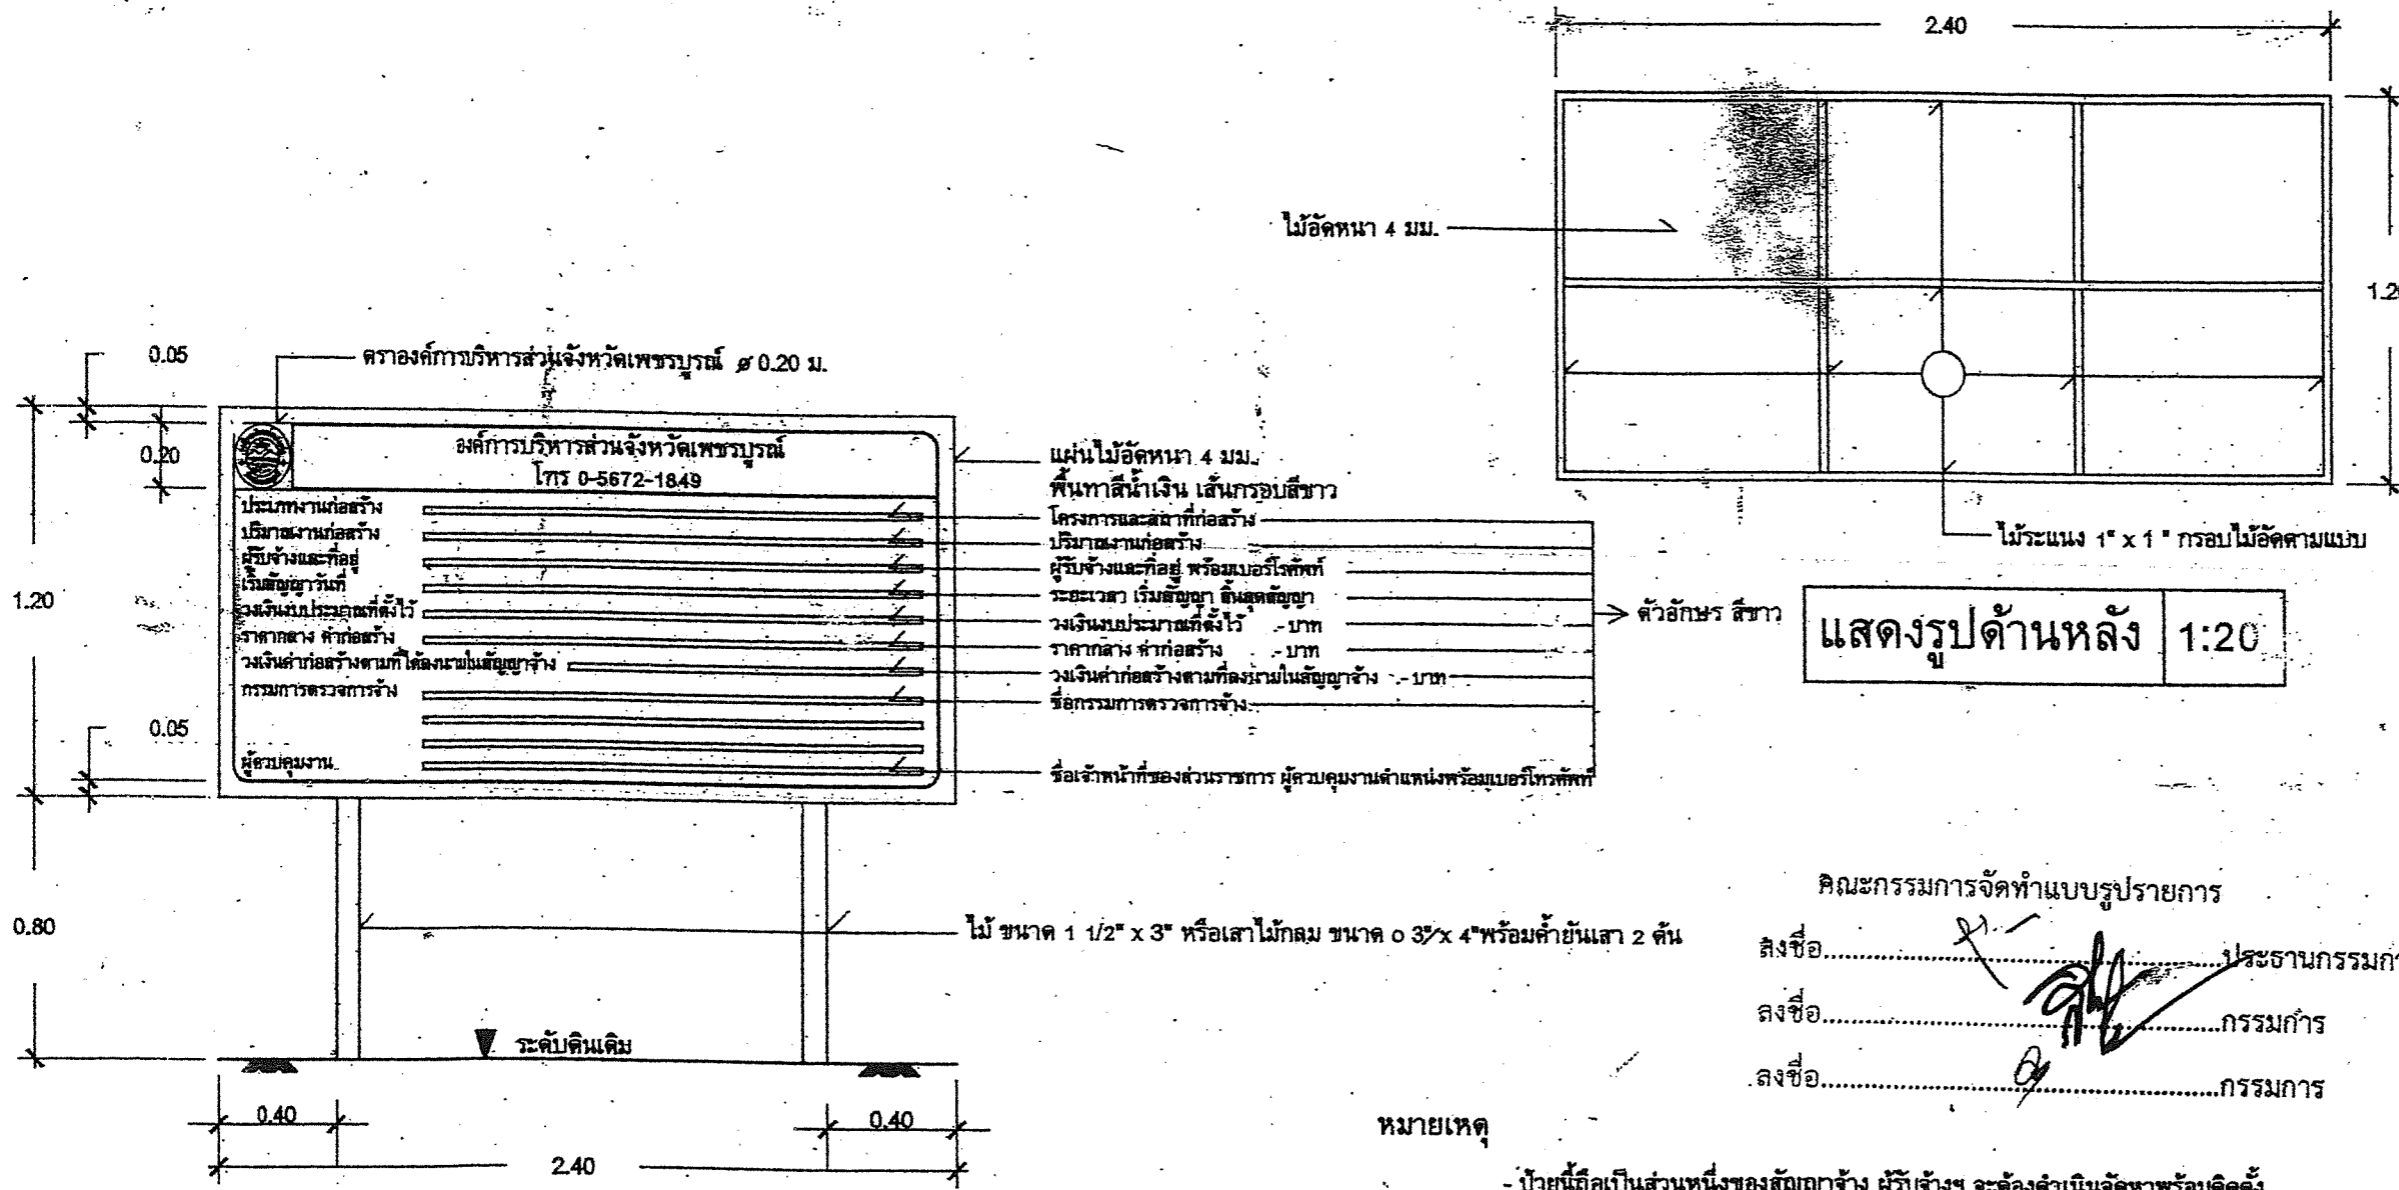 2.40
ไม้อัดหนา 4 มม.
ไม้ระแนง 1" x 1 " กรอบไม้อัดตามแบบ
แสดงรูปด้านหลัง 1:20
0.05
ตราองค์การบริหารส่วนจังหวัดเพชรบูรณ์ ø 0.20 ม.
0.20
องค์การบริหารส่วนจังหวัดเพชรบูรณ์
โทร 0-5672-1849
ประเภทงานก่อสร้าง
ปริมาณงานก่อสร้าง
ผู้รับจ้างและที่อยู่
เริ่มสัญญาวันที่
วงเงินงบประมาณที่ตั้งไว้
ราคากลาง ค่าก่อสร้าง
วงเงินค่าก่อสร้างตามที่ได้ลงนามในสัญญาจ้าง
กรรมการตรวจการจ้าง
ผู้ควบคุมงาน
แผ่นไม้อัดหนา 4 มม.
พื้นทาสีน้ำเงิน เส้นกรอบสีขาว
โครงการและสถาที่ก่อสร้าง
ปริมาณงานก่อสร้าง
ผู้รับจ้างและที่อยู่ พร้อมเบอร์โรศัพท์
ระยะเวลา เริ่มสัญญา สิ้นสุดสัญญา
วงเงินงบประมาณที่ตั้งไว้ .- บาท
ราคากลาง ค่าก่อสร้าง .- บาท
วงเงินค่าก่อสร้างตามที่ลงนามในสัญญาจ้าง .- บาท
ชื่อกรรมการตรวจการจ้าง
ชื่อเจ้าหน้าที่ของส่วนราชการ ผู้ควบคุมงานตำแหน่งพร้อมเบอร์โทรศัพท์
ตัวอักษร สีขาว
1.20
0.05
0.80
ไม้ ขนาด 1 1/2" x 3" หรือเสาไม้กลม ขนาด o 3" x 4"พร้อมค้ำยันเสา 2 ต้น
ระดับดินเดิม
0.40
0.40
2.40
คณะกรรมการจัดทำแบบรูปรายการ
ลงชื่อ..............................ประธานกรรมกา
ลงชื่อ..............................กรรมการ
ลงชื่อ..............................กรรมการ
หมายเหตุ
- ป้ายนี้ถือเป็นส่วนหนึ่งของสัญญาจ้าง ผู้รับจ้างฯ จะต้องดำเนินจัดหาพร้อมติดตั้ง